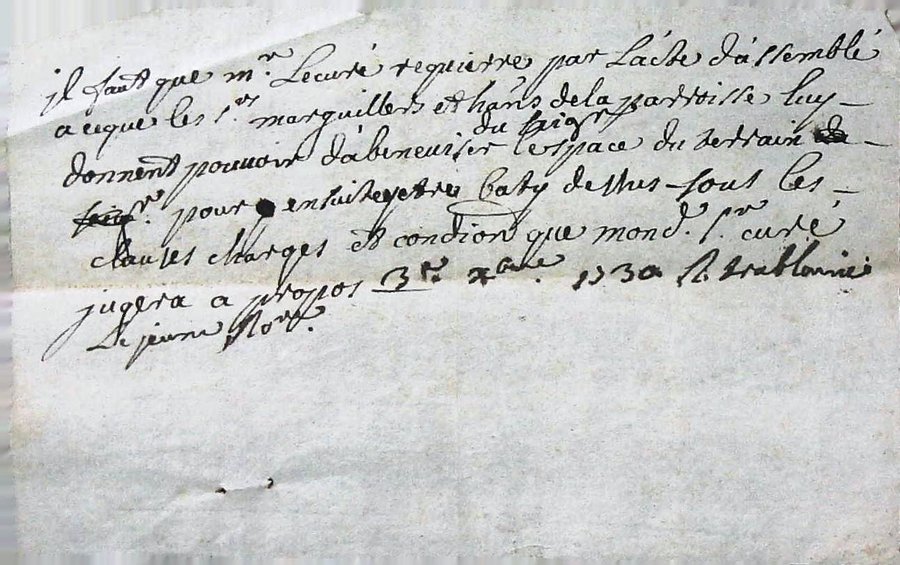 il faut que mr. Lecuré requierre par Lácte dássemblé
a ceque les Srs marguilliers et hañs de la parroisse luy -
donnent pouvoir dábeneviser du seigr lespace du terrain -
pour ensuite yetre baty dessus - sous les -
clauses charges et condion que mond. Sr. curé
jugera a propos 3e. xbre. 1730
Le jeune Nore.